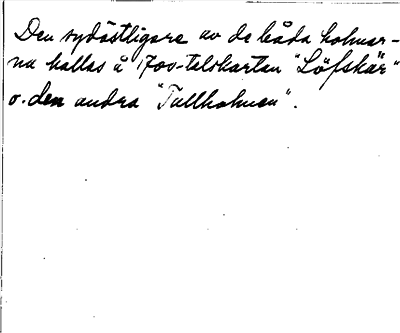 Den sydöstligare av de båda holmar-
na kallas å 1700-talskartan "Löfskär"
o. den andra "Tullholmen".